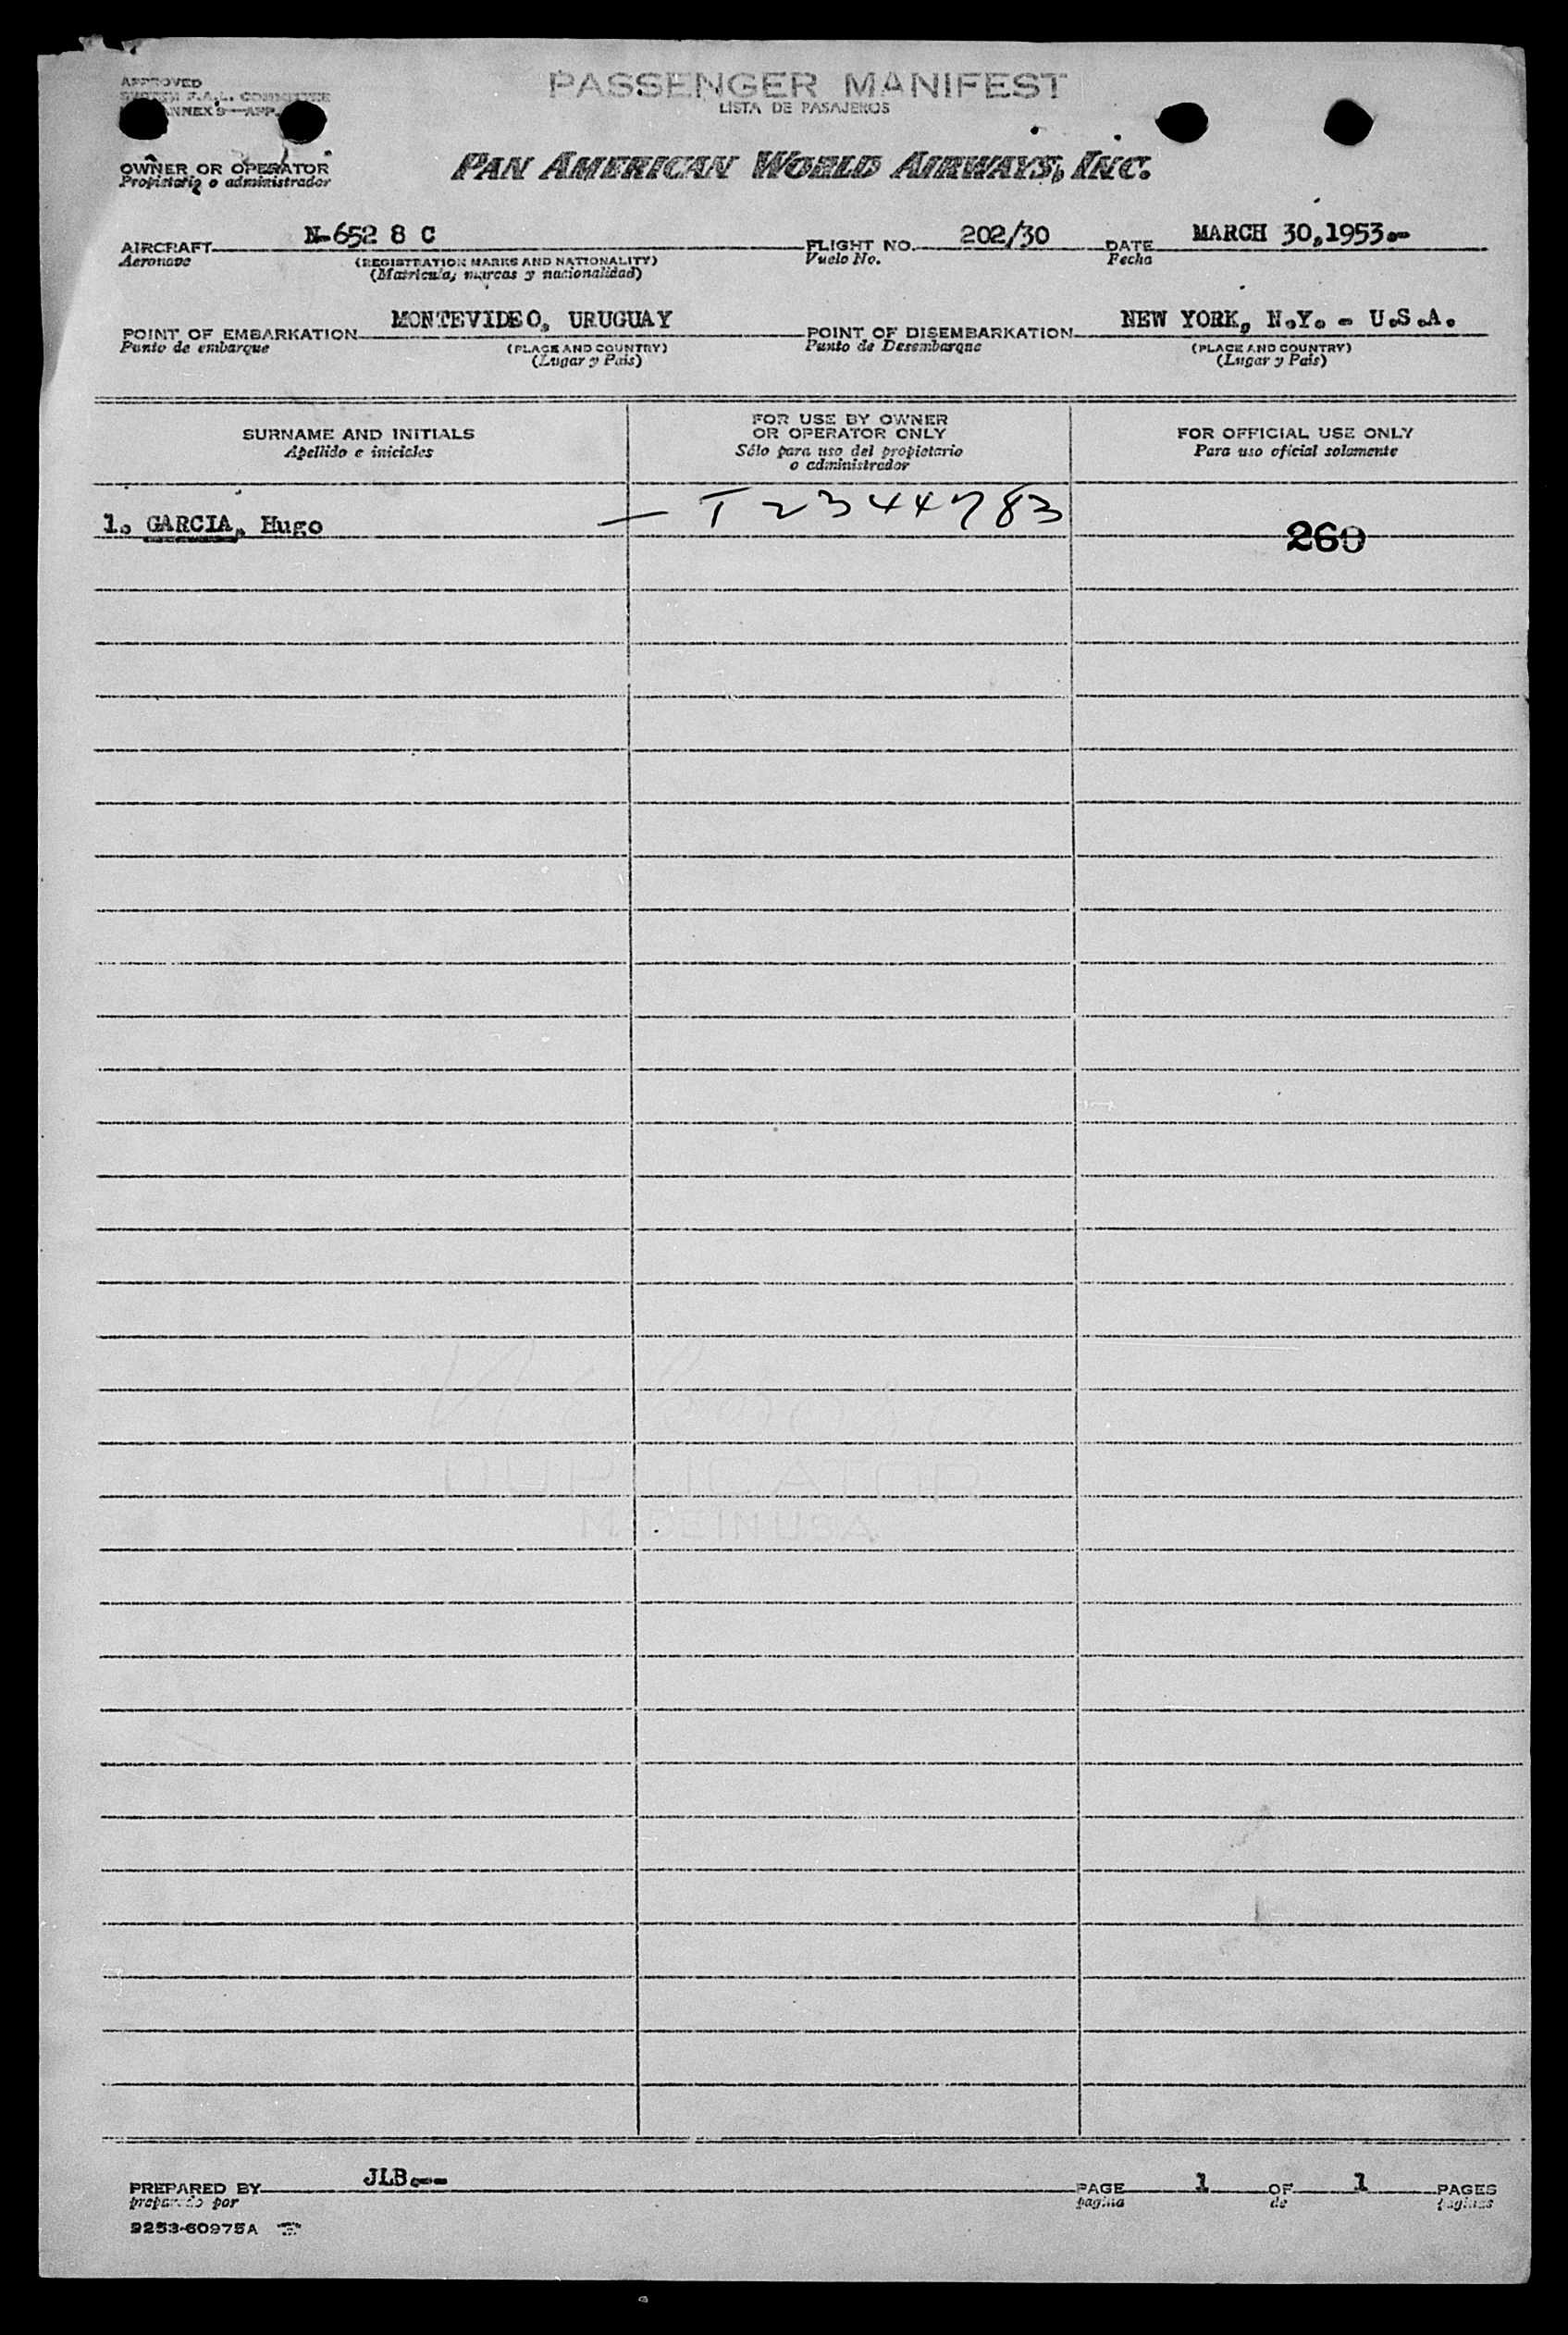 APPROVED
SYSTEM F.A.L. COMMITTEE
ANNEX 9—APP.
PASSENGER MANIFEST
LISTA DE PASAJEROS
OWNER OR OPERATOR
Propietario o administrador
PAN AMERICAN WORLD AIRWAYS, INC.
AIRCRAFT N-652 8 C FLIGHT NO. 202/30 DATE MARCH 30,1953.-
Aeronave (REGISTRATION MARKS AND NATIONALITY) Vuelo No. Fecha
(Matricula, marcas y nacionalidad)
POINT OF EMBARKATION MONTEVIDEO, URUGUAY POINT OF DISEMBARKATION NEW YORK, N.Y. - U.S.A.
Punto de embarque (PLACE AND COUNTRY) Punto de Desembarque (PLACE AND COUNTRY)
(Lugar y Pais) (Lugar y Pais)
SURNAME AND INITIALS
Apellido e iniciales
FOR USE BY OWNER
OR OPERATOR ONLY
Sólo para uso del propietario
o administrador
FOR OFFICIAL USE ONLY
Para uso oficial solamente
1. GARCIA, Hugo — T2344783 260
DUPLICATOR
MADE IN U.S.A.
PREPARED BY JLB.-- PAGE 1 OF 1 PAGES
preparado por pagina de paginas
9253-60975A